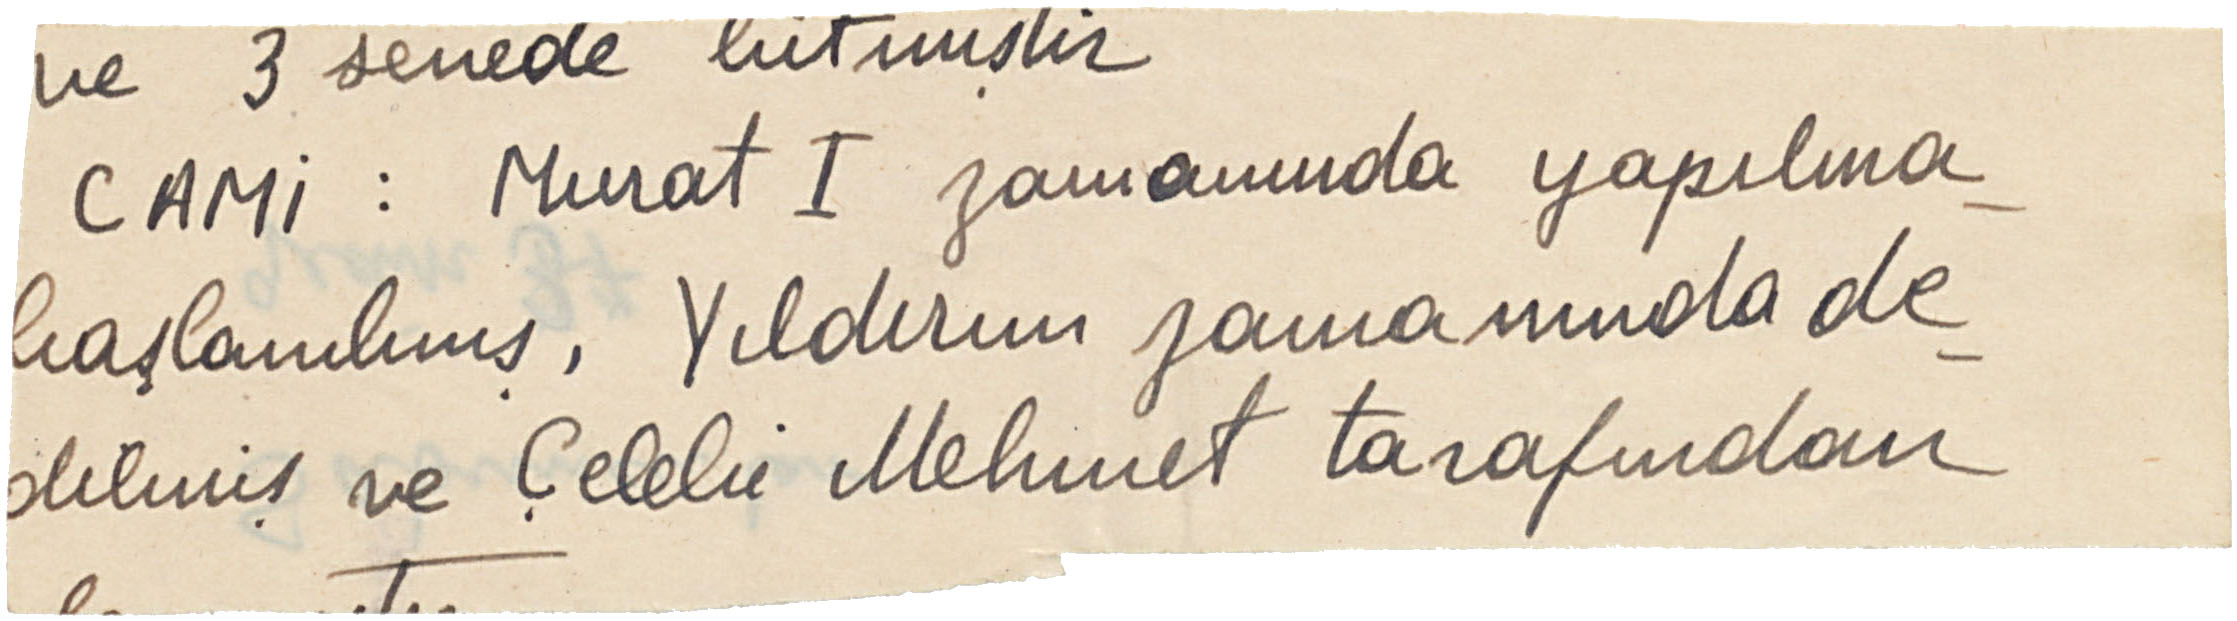 ve 3 senede bitmiştir
CAMİ : Murat I zamanında yapılma_
başlanılmış, Yıldırım zamanında de_
dilmiş ve Çelebi Mehmet tarafından